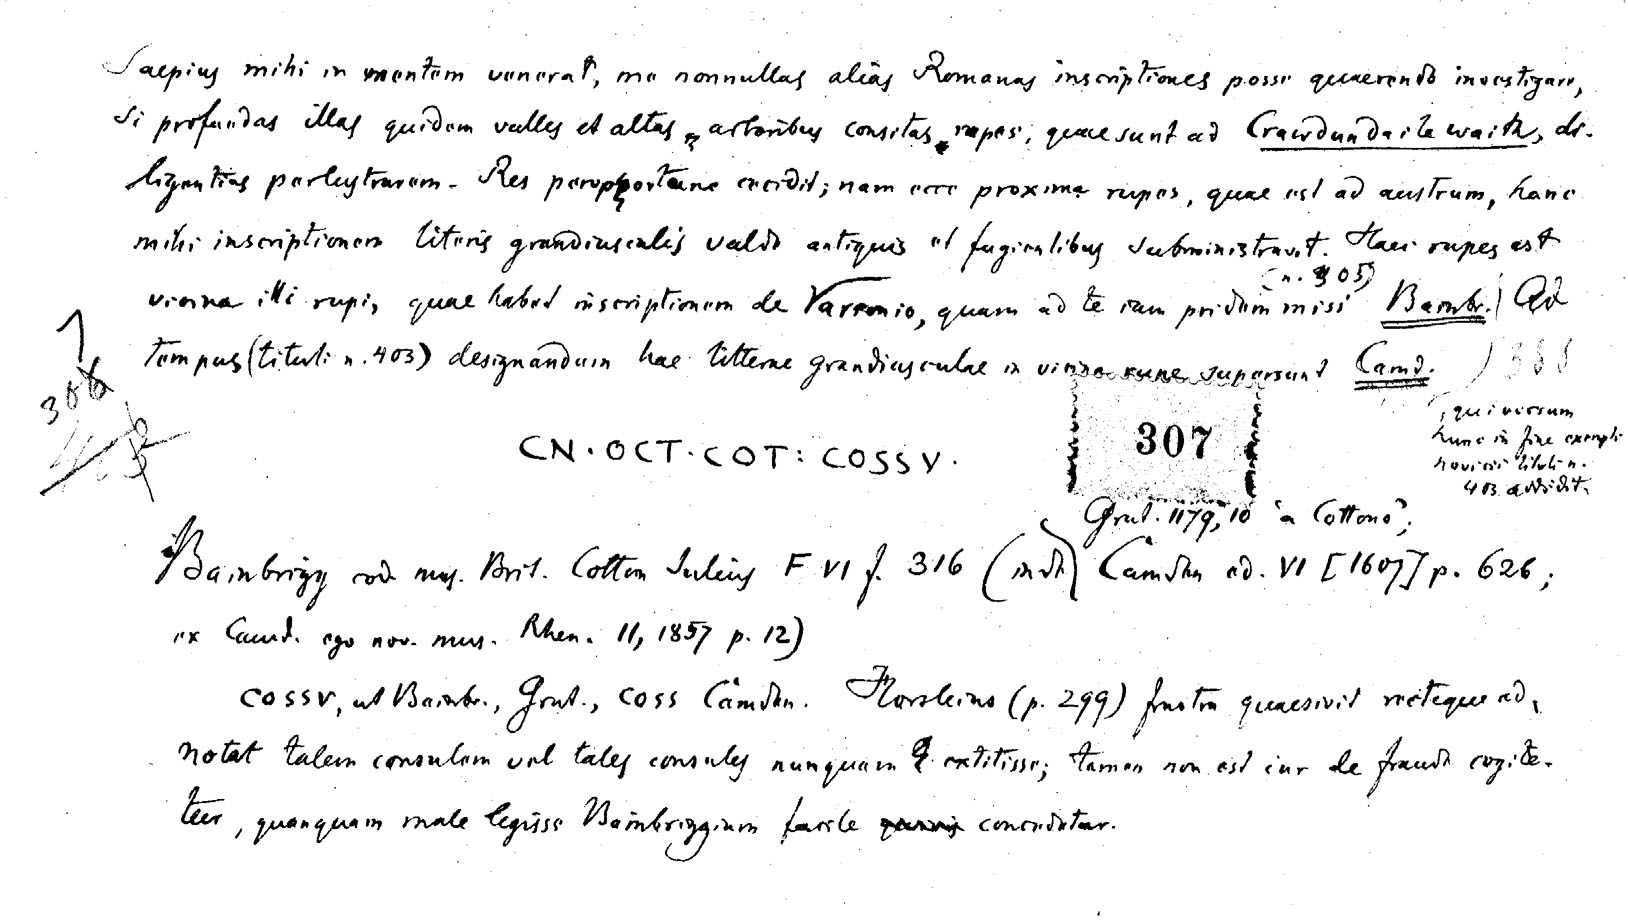 Saepius mihi in mentem venerat, me nonnullas alias Romanas inscriptiones posse quaerendo investigare,
si profundas illas quidem valles et altas, arboribus consitas rupes, quae sunt ad Crawdundailewaith, di-
ligentius perlustrarem. Res peropportune cecidit; nam ecce proxima rupes, quae est ad austrum, hanc
mihi inscriptionem literis grandiusculis valde antiquis et fugientibus subministravit. Haec rupes est
(n. 305)
vicina illi rupi, quae habet inscriptionem de Varronio, quam ad te iam pridem misi Bainbr. Ad
tempus (tituli n. 403) designandum hae litterae grandiusculae in vicina rupe supersunt Camd.
, qui versum
hunc in fine exempli
novicii tituli n.
403 addidit.
306
307
CN·OCT·COT: COSSV·
Grut. 1179, 10 'a Cottono';
Bainbrigg cod. mus. Brit. Cotton Julius F VI f. 316 (inde) Camden ed. VI [1607] p. 626;
ex Camd. ego nov. mus. Rhen. 11, 1857 p. 12)
COSSV, ut Bainbr., Grut., COSS Camden. Horsleius (p. 299) frustra quaesivit recteque ad-
notat talem consulem vel tales consules nunquam extitisse; tamen non est cur de fraude cogite-
tur, quanquam male legisse Bainbriggium facile concedatur.